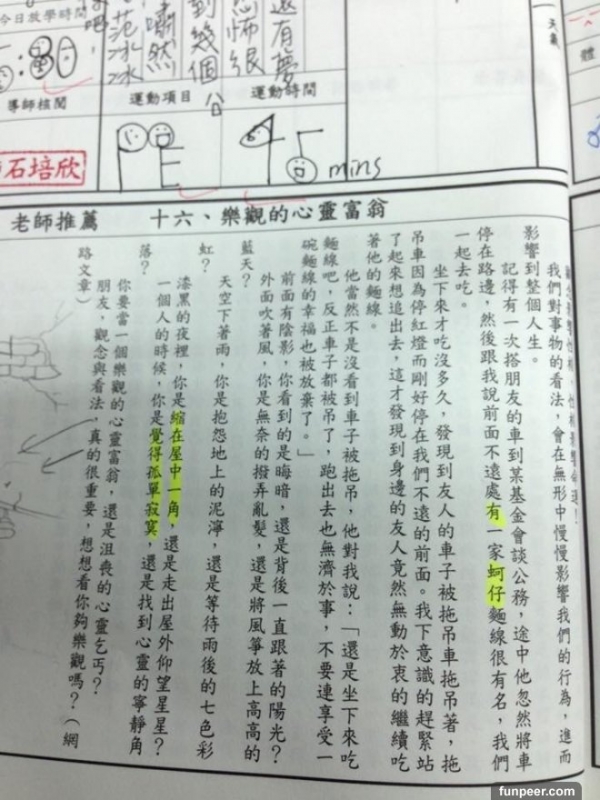 今日放學時間
還有夢
恐怖很
到幾個
嘯然
范冰冰
天氣
體
5:30
導師核閱
運動項目
運動時間
石培欣
PE
45 mins
老師推薦 十六、樂觀的心靈富翁
我們對事物的看法，會在無形中慢慢影響我們的行為，進而
影響到整個人生。
記得有一次搭朋友的車到某基金會談公務，途中他忽然將車
停在路邊，然後跟我說前面不遠處有一家蚵仔麵線很有名，我們
一起去吃。
坐下來才吃沒多久，發現到友人的車子被拖吊車拖吊著，拖
吊車因為停紅燈而剛好停在我們不遠的前面。我下意識的趕緊站
了起來想追出去，這才發現到身邊的友人竟然無動於衷的繼續吃
著他的麵線。
他當然不是沒看到車子被拖吊，他對我說：「還是坐下來吃
麵線吧，反正車子都被吊了，跑出去也無濟於事，不要連享受一
碗麵線的幸福也被放棄了。」
前面有陰影，你看到的是晦暗，還是背後一直跟著的陽光？
外面吹著風，你是無奈的撥弄亂髮，還是將風箏放上高高的
藍天？
天空下著雨，你是抱怨地上的泥濘，還是等待雨後的七色彩
虹？
漆黑的夜裡，你是縮在屋中一角，還是走出屋外仰望星星？
一個人的時候，你是覺得孤單寂寞，還是找到心靈的寧靜角
落？
你要當一個樂觀的心靈富翁，還是沮喪的心靈乞丐？
朋友，觀念與看法，真的很重要，想想看你夠樂觀嗎？（網
路文章）
funpeer.com